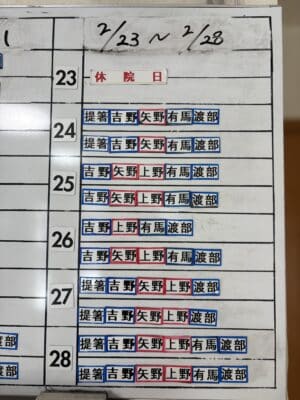 2/23 ～ 2/28
23 休 院 日
24 提箸 吉野 矢野 有馬 渡部
提箸 吉野 矢野 有馬 渡部
25 吉野 矢野 上野 有馬 渡部
吉野 矢野 上野 有馬 渡部
26 吉野 上野 有馬 渡部
吉野 矢野 上野 有馬 渡部
27 提箸 吉野 矢野 上野 渡部
提箸 吉野 矢野 上野 渡部
28 提箸 吉野 矢野 上野 有馬 渡部
提箸 吉野 矢野 上野 有馬 渡部
渡部
渡部